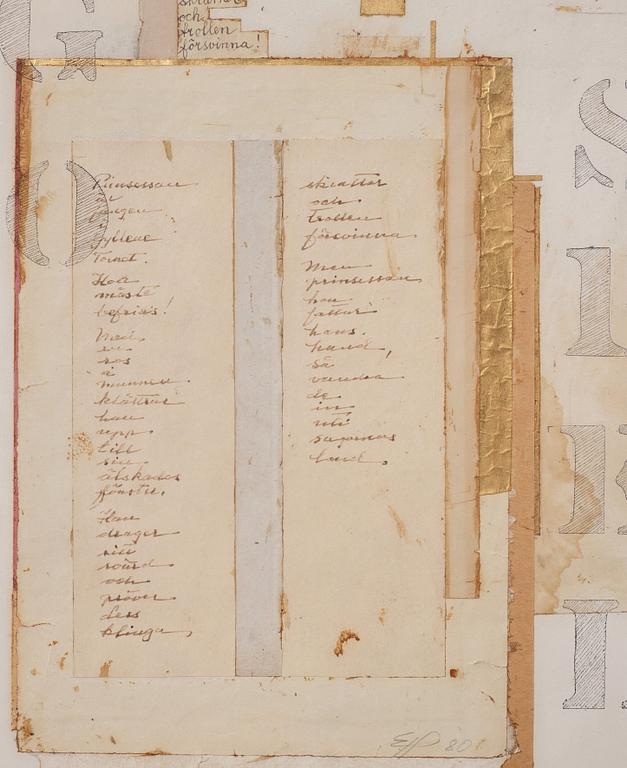 skrattar
och
trollen
försvinna!
G
O
S
Prinsessan
är
fången
gyllene
Tornet.
Hon
måste
befrias!
Med
en
ros
i
munnen
klättrar
han
upp
till
sin
älskades
fönster.
Han
drager
sitt
svärd
och
pröver
dess
klinga,
skrattar
och
trollen
försvinna
Men
prinsessan
hon
fattar
hans
hand,
Så
vandra
de
in
uti
sagornas
land.
80